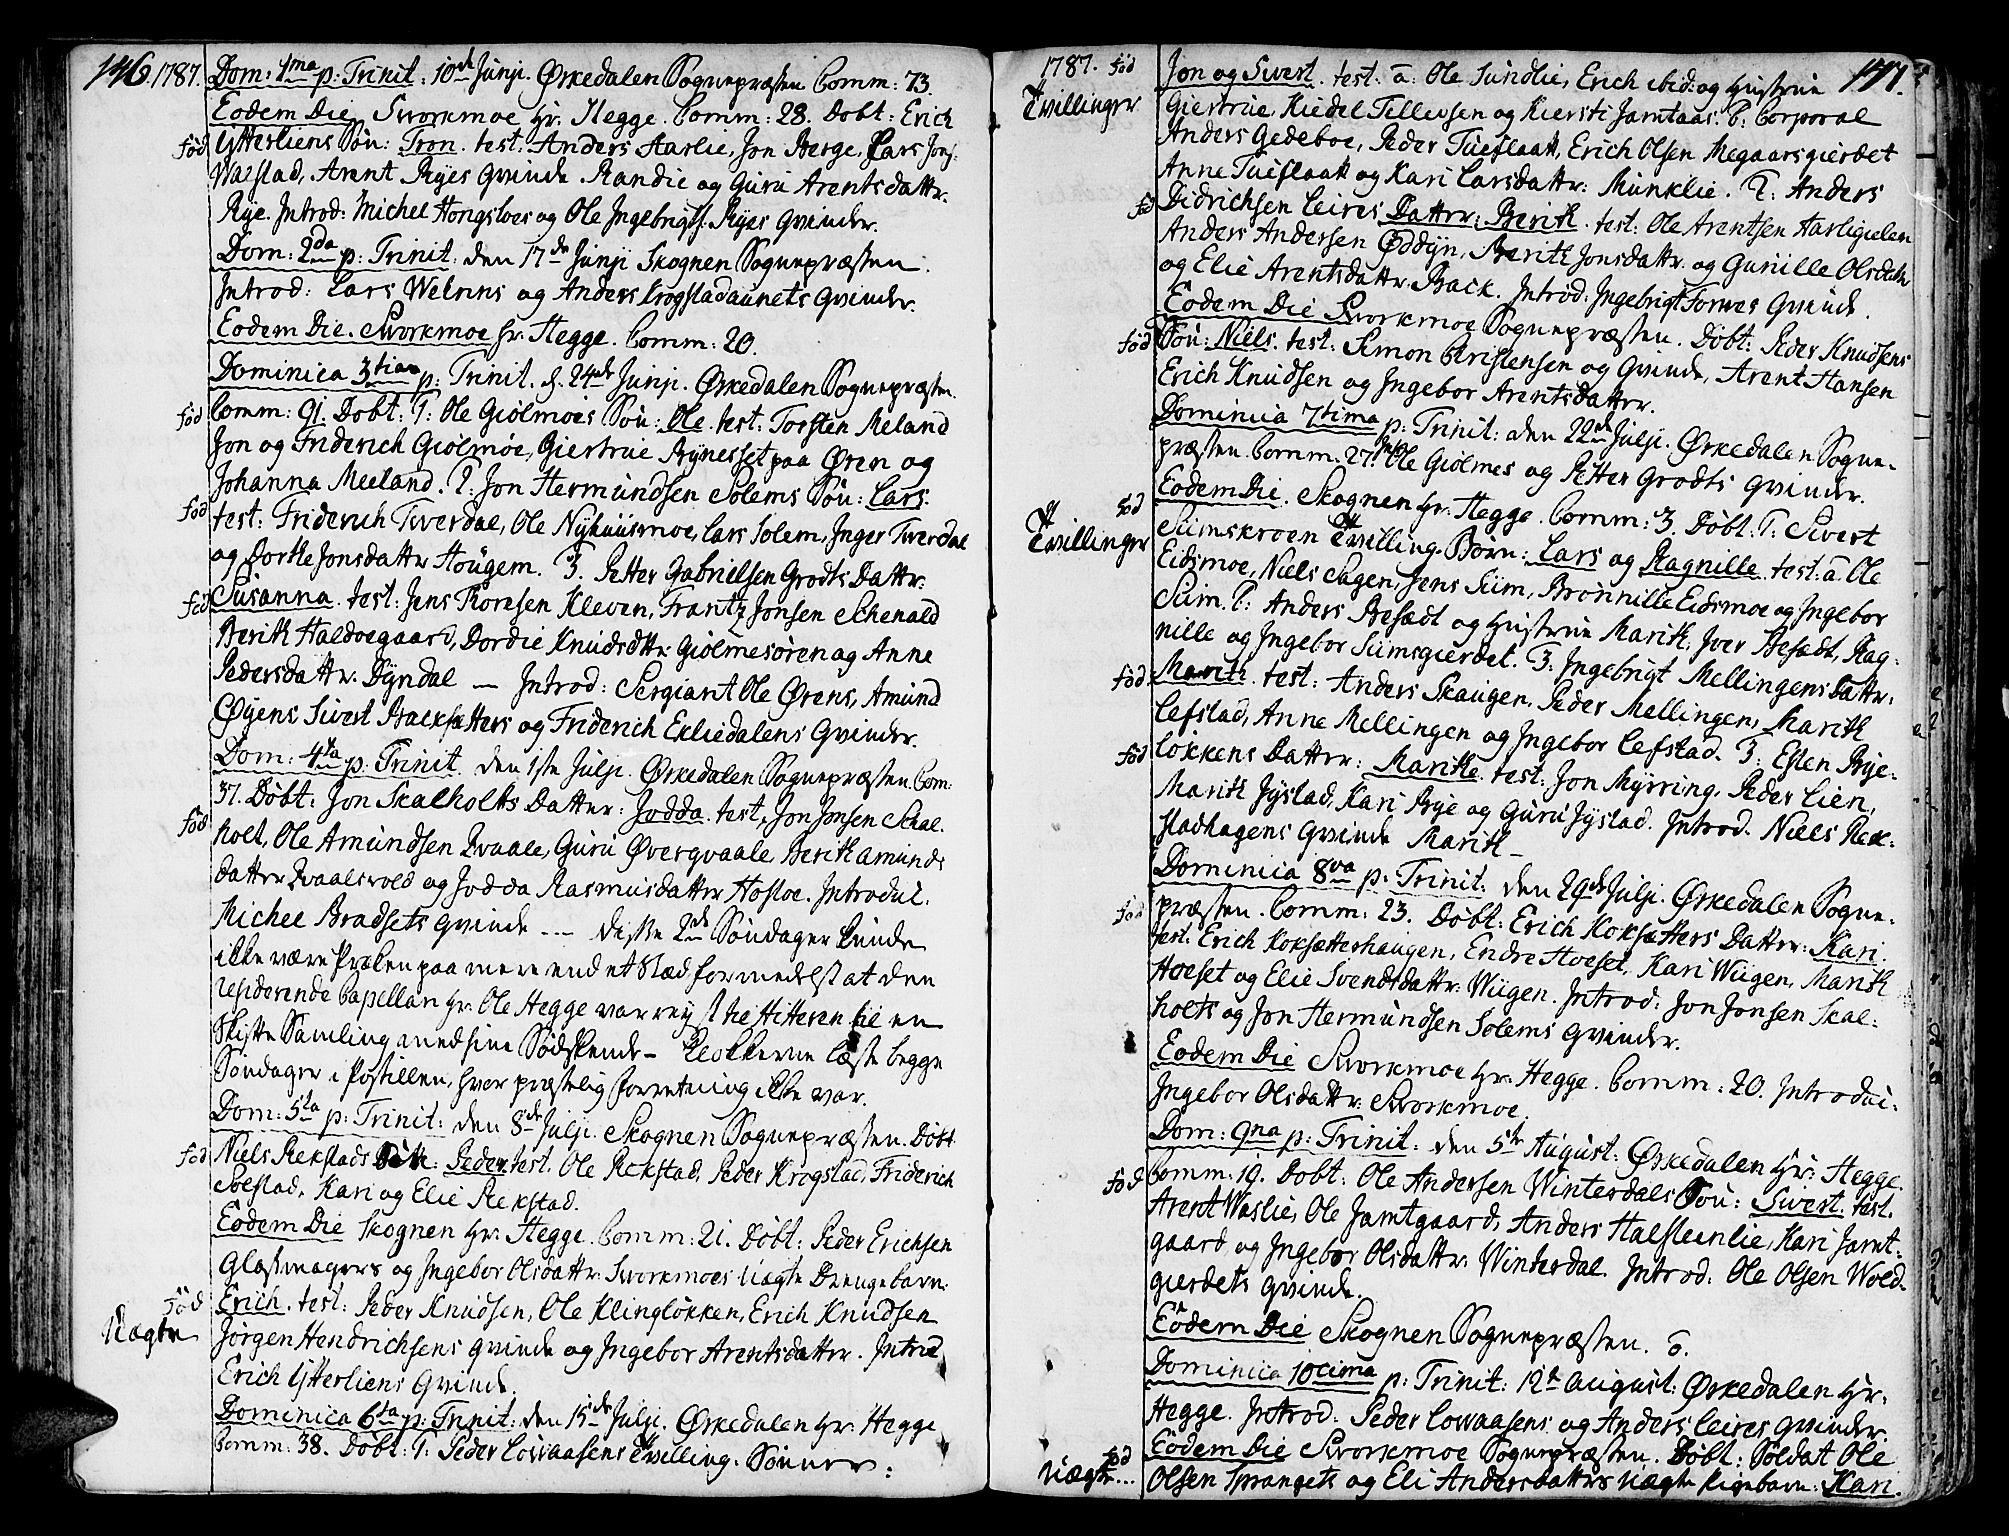 146. 1787. Dom: 1ma p: Trinit: 10de Junji. Ørkedalen Sognepræsten Comm: 73.
Eodem Die Svorkmoe Hr. Hegge. Comm: 28. Døbt: Erich
fød Ytterliens Søn: Tron. test: Anders Aarlie, Jon Berge, Lars Jons:
Walstad, Arent Ryes Qvinde Randie og Guru Arentsdattr.
Rye. Introd: Michel Hongsloes og Ole Ingebrigts. Ryes Qvinder.
Dom: 2da p: Trinit: den 17de Junji Skognen Sognepræsten.
Introd: Lars Welruns og Anders Krogstadaunets Qvinder.
Eodem Die. Svorkmoe Hr. Hegge. Comm: 20.
Dominica 3tia p: Trinit. d. 24de Junji. Ørkedalen Sognepræsten.
fød Comm: 91. Døbt: T: Ole Giølmoes Søn: Ole. test: Torsten Meland
Jon og Friderich Giølmoe, Giertrue Rynesset paa Øren og
Johanna Meeland. 2: Jon Hermundsen Solems Søn: Lars.
fød test: Friderich Tverdal, Ole Nyhuusmoe, Lars Solem, Inger Tverdal
og Dorthe Jonsdattr Hougem. 3. Petter Gabrielsen Grodts Dattr:
fød Susanna. test: Jens Thoresen Kleven, Frantz Jonsen Schenald
Berith Haldoegaard, Dordie Knudsdttr: Giølmesøren og Anne
Pedersdattr. Dyndal — Introd: Sergiant Ole Ørens, Amund
Øyens Sivert Backsætters og Friderich Ekliedalens Qvinder.
Dom: 4ta p: Trinit. den 1ste Julji. Ørkedalen Sognepræsten. Com:
37. Døbt: Jon Skalholts Datter: Jodda. test: Jon Jonsen Skal-
fød holt, Ole Amundsen Qvaale, Guru Øvergvaale, Berith Amunds
datter Qvaalsvold og Jodda Rasmusdattr Hofloe. Introdul.
Michel Bradsets Qvinde --- Disse 2de Søndager kunde
ikke være Præken paa mere end et Stæd formedelst at den
residerende Capellan Hr. Ole Hegge var reyst til Hitteren til en
Skifte Samling med sine Sødskende — Klokkerne læste begge
Søndager i Postillen, hvor præstelig forretning ikke var.
Dom: 5ta p: Trinit: den 8de Julji. Skognen Sognepræsten. Døbt
fød Niels Rekstads Søn: Peder. test. Ole Rekstad, Peder Krogstad, Friderich
Solstad, Kari og Elie Rekstad.
Eodem Die Skognen Hr. Hegge. Comm: 21. Døbt: Peder Erichsen
Glasmagers og Ingebor Olsdattr: Svorkmoes Uægte Drengebarn:
fød Erich. test: Peder Knudsen, Ole Klingløkken, Erich Knudsen
Uægte Jørgen Hendrichsens Qvinde og Ingebor Arentsdattr. Introd
Erich Ytterliens Qvinde.
Dominica 6ta p: Trinit: den 15de Julji. Ørkedalen Hr. Hegge
Comm: 38. Døbt: T: Peder Lowaasens Tvilling. Sønner:
1787. fød Jon og Sivert. test: a: Ole Sundlie, Erich ibid: og Hustrue 147.
Tvillinger Giertrue, Kiedel Tellevsen og Kiersti Jamtaas. b: Corporal
Anders Gedeboe, Peder Tueflaatt, Erich Olsen Megaarsgierdet
Anne Tueflaatt og Kari Larsdattr: Munklie. 2: Anders
fød Didrichsen Leires Datter: Berith. test: Ole Arentsen Aarligielen
Anders Andersen Øddyn, Berith Jonsdattr. og Gunille Olsdattr
og Elie Arentsdattr Back. Introd: Ingebrigt Forves Qvinde.
Eodem Die Svorkmoe Sognepræsten. Døbt: Peder Knudsens
fød Søn: Niels. test: Simon Christensen og Qvinde, Arent Hansen
Erich Knudsen og Ingebor Arentsdattr.
Dominica 7tima p: Trinit: den 22de Julji. Ørkedalen Sogne-
præsten. Comm: 27. Int: Ole Giølmes og Petter Grodts Qvinder.
Eodem Die. Skognen Hr. Hegge. Comm: 3. Døbt: T: Sivert
fød Tvillinger Sumskroen Tvilling. Børn: Lars og Ragnille. test: a: Ole
Eidsmoe, Niels Sagen, Jens Sum, Brønnille Eidsmoe og Ingebor
Sum. b: Anders Besædt og Hustrue Marith. Iver Besædt, Rag-
nille og Ingebor Sumsgierdet. 3. Ingebrigt Mellingens Dattr:
fød Marith. test: Anders Skaugen, Peder Mellingen, Marith
Lefstad, Anne Mellingen og Ingebor Lefstad. 3: Esten Rye-
fød løkkens Datter: Marithe. test: Jon Myrring, Peder Lien,
Marith Jystad, Kari Rye og Guru Jystad. Introd. Niels Rek-
stadhagens Qvinde Marith —
Dominica 8va p: Trinit: den 29de Julji. Ørkedalen Sogne-
fød præsten. Comm: 23. Døbt: Erich Koksætters Datter: Kari.
test: Erich Koksætterhaugen, Endre Hoeset, Kari Wiigen, Marith
Hoeset og Elie Svendsdattr: Wiigen. Introd: Jon Jonsen Skal-
holts og Jon Hermundsen Solems Qvinder.
Eodem Die Svorkmoe Hr. Hegge. Comm: 20. Introdui-
Ingebor Olsdattr: Svorkmoe.
Dom: 9na p: Trinit: den 5te August: Ørkedalen Hr: Hegge.
fød Comm: 19. Døbt: Ole Andersen Winterdals Søn: Sivert. test.
Arent Waslie, Ole Jamtgaard, Anders Halsteenlie, Kari Jamt-
gaard og Ingebor Olsdattr: Winterdal. Introd: Ole Olsen Wold-
gierdets Qvinde.
Eodem Die Skognen Sognepræsten. 6.
Dominica 10cima p: Trinit: 12te August: Ørkedalen Hr.
Hegge. Introd: Peder Lowaasens og Anders Leires Qvinder.
fød Eodem Die Svorkmoe Sognepræsten. Døbt: Soldat Ole
Uægte... Olsen Sprangets og Eli Andersdatters Uægte Pigebarn: Kari.